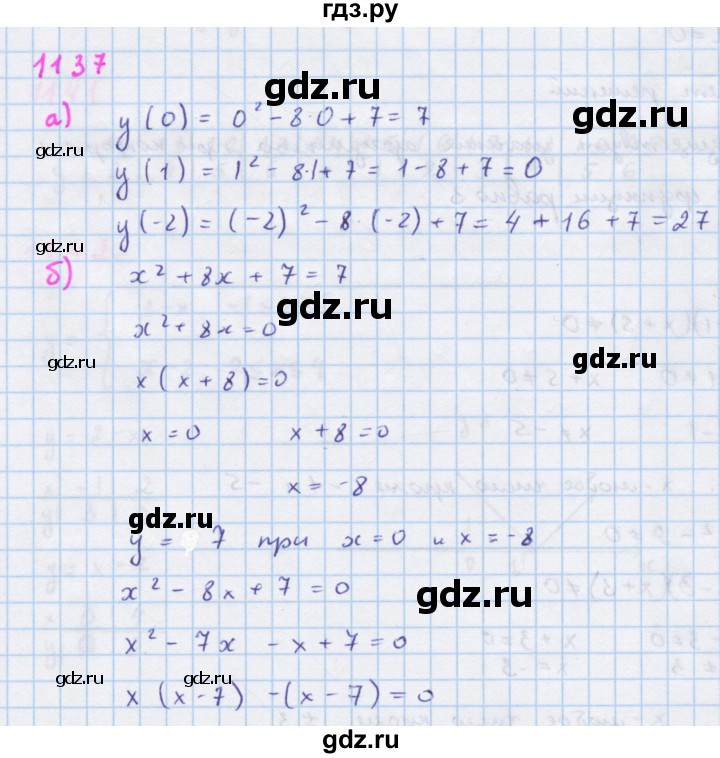 гдз.ру
1137
gdz.ru
а) y(0) = 0² - 8·0 + 7 = 7
gdz.ru
gdz.ru
y(1) = 1² - 8·1 + 7 = 1 - 8 + 7 = 0
y(-2) = (-2)² - 8·(-2) + 7 = 4 + 16 + 7 = 27
б) x² + 8x + 7 = 7
gdz.ru
x² + 8x = 0
gdz.ru
gdz.ru
x(x + 8) = 0
x = 0 x + 8 = 0
x = -8
y = 7 при x = 0 и x = -8
gdz.ru
x² - 8x + 7 = 0
x² - 7x - x + 7 = 0
gdz.ru
gdz.ru
x(x - 7) - (x - 7) = 0
gdz.ru